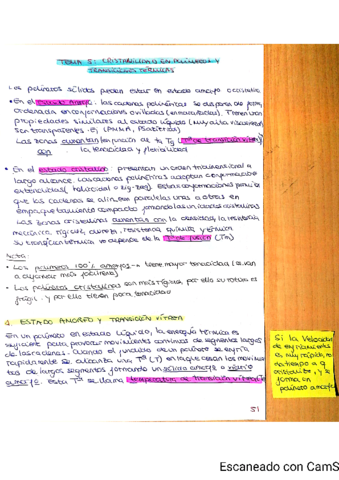 TEMA 5: CRISTALINIDAD EN POLÍMEROS Y
TRANSICIONES TÉRMICAS
Los polímeros sólidos pueden estar en estado amorfo o cristalino
• En el estado amorfo, las cadenas poliméricas se disponen de forma
ordenada en conformaciones ovilladas (enmarañadas). Tienen unas
propiedades similares al estado líquido (muy alta viscosidad)
son transparentes. Ej (PMMA, PS atáctico)
Las zonas aumentan en función de Tg (Tª de transición vítrea)
con la tenacidad y flexibilidad
• En el estado cristalino presentan un orden tridimensional a
largo alcance. Las cadenas poliméricas adoptan conformaciones
extendidas (helicoidal o zig-zag). Estas conformaciones permiten
que las cadenas se alineen paralelas unas a otras en
empaquetamiento compacto formando las unidades cristalinas
Las zonas cristalinas aumentan con la densidad, la resistencia
mecánica, rigidez, dureza, resistencia química y térmica
Su transición térmica va depender de la Tª de fusión (Tm)
Nota
• Los polímeros 100% amorfos → tiene mayor tenacidad (se van
a deformar más fácilmente)
• Los polímeros cristalinos son más rígidos, por ello su rotura es
frágil y por ello tienen poca tenacidad
1. ESTADO AMORFO Y TRANSICIÓN VÍTREA
En un polímero en estado líquido, la energía térmica es
suficiente para provocar movimientos continuos de segmentos largos
de las cadenas. Cuando el fundido de un polímero se enfría
rápidamente se alcanza una Tª (T) en la que cesan los movimien
tos de largos segmentos formando un sólido amorfo o vidrio
amorfo. Esta Tª se llama temperatura de transición vítrea
51
Si la velocidad
de enfriamiento
es muy rápida, no
da tiempo a q
cristalice, y se
forma un
polímero amorfo
Escaneado con CamS